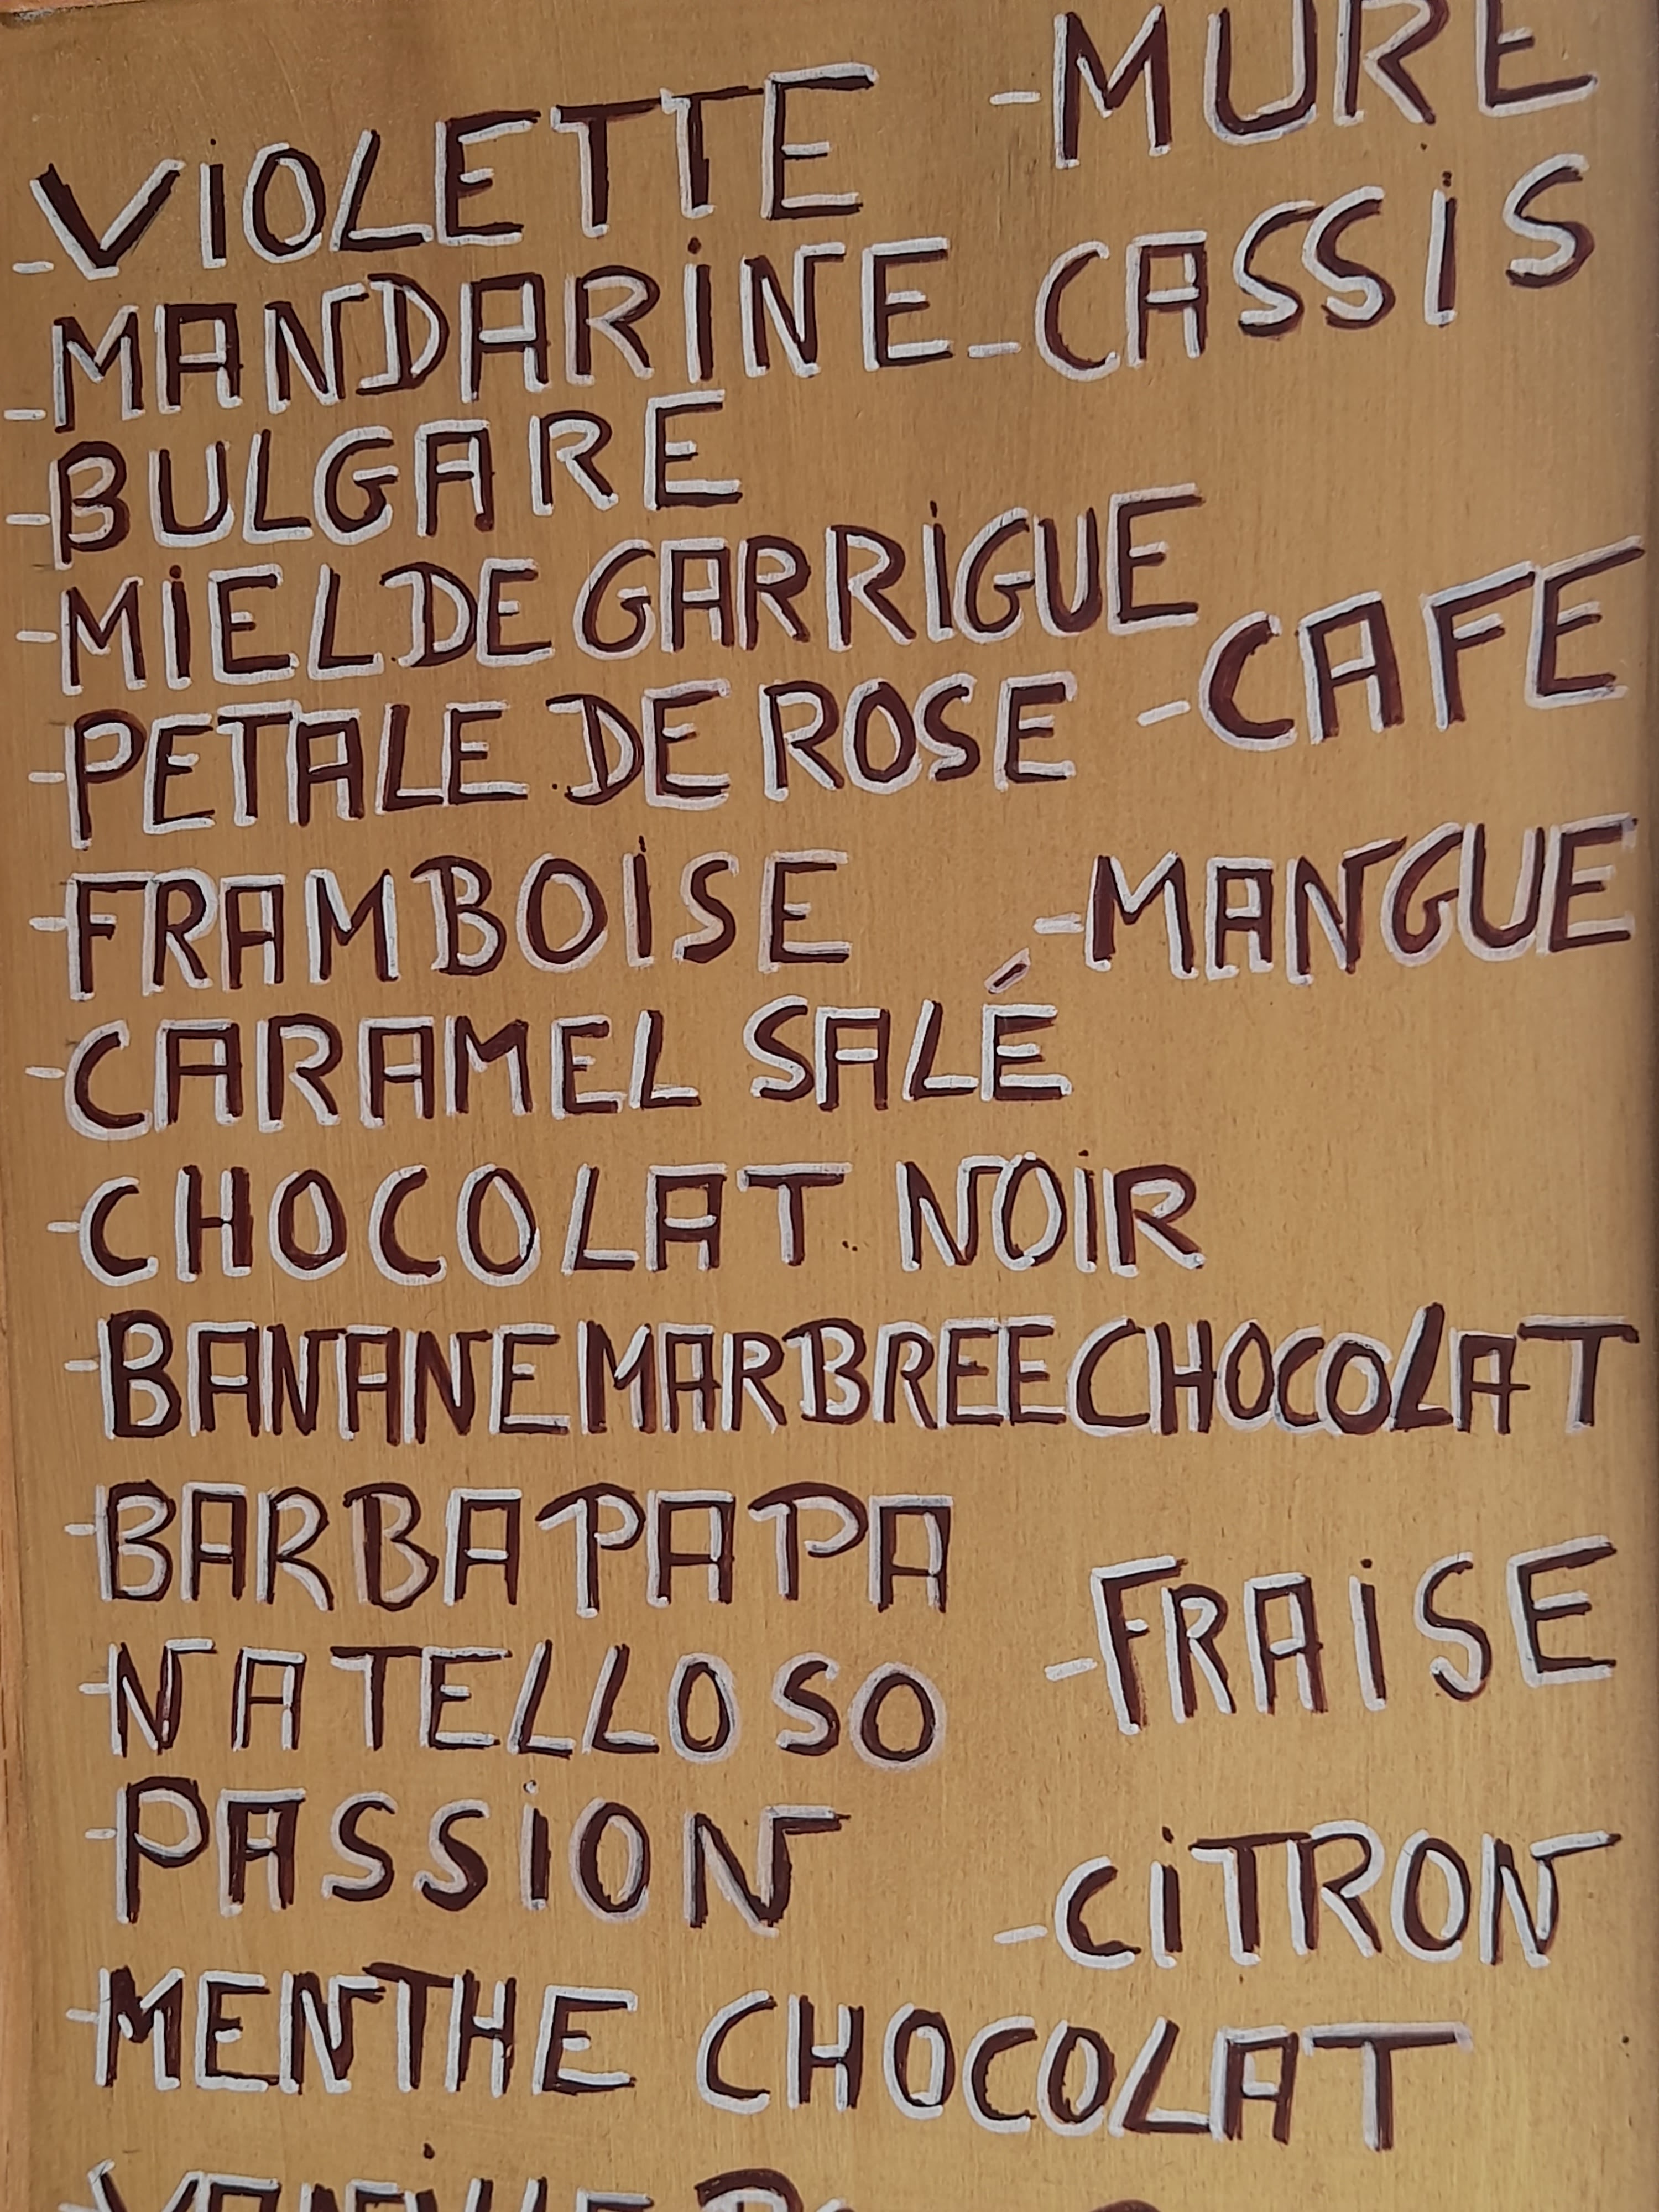 -VIOLETTE -MURE
-MANDARINE -CASSIS
-BULGARE
-MIEL DE GARRIGUE
-PETALE DE ROSE -CAFE
-FRAMBOISE -MANGUE
-CARAMEL SALÉ
-CHOCOLAT NOIR
-BANANE MARBREE CHOCOLAT
-BARBAPAPA
-NATELLOSO -FRAISE
-PASSION -CITRON
-MENTHE CHOCOLAT